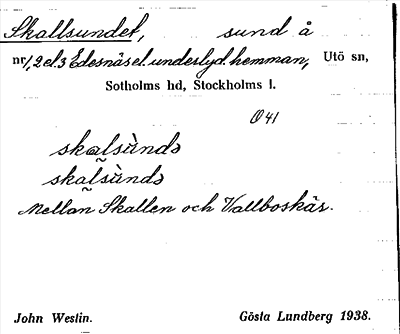 Skallsundet, sund å
nr 1, 2 el. 3 Edesnäs el. underlyd. hemman, Utö sn,
Sotholms hd, Stockholms l.
Ö 41
skalsùndə
skalsùndə
Mellan Skallen och Vallboskär.
John Westin. Gösta Lundberg 1938.